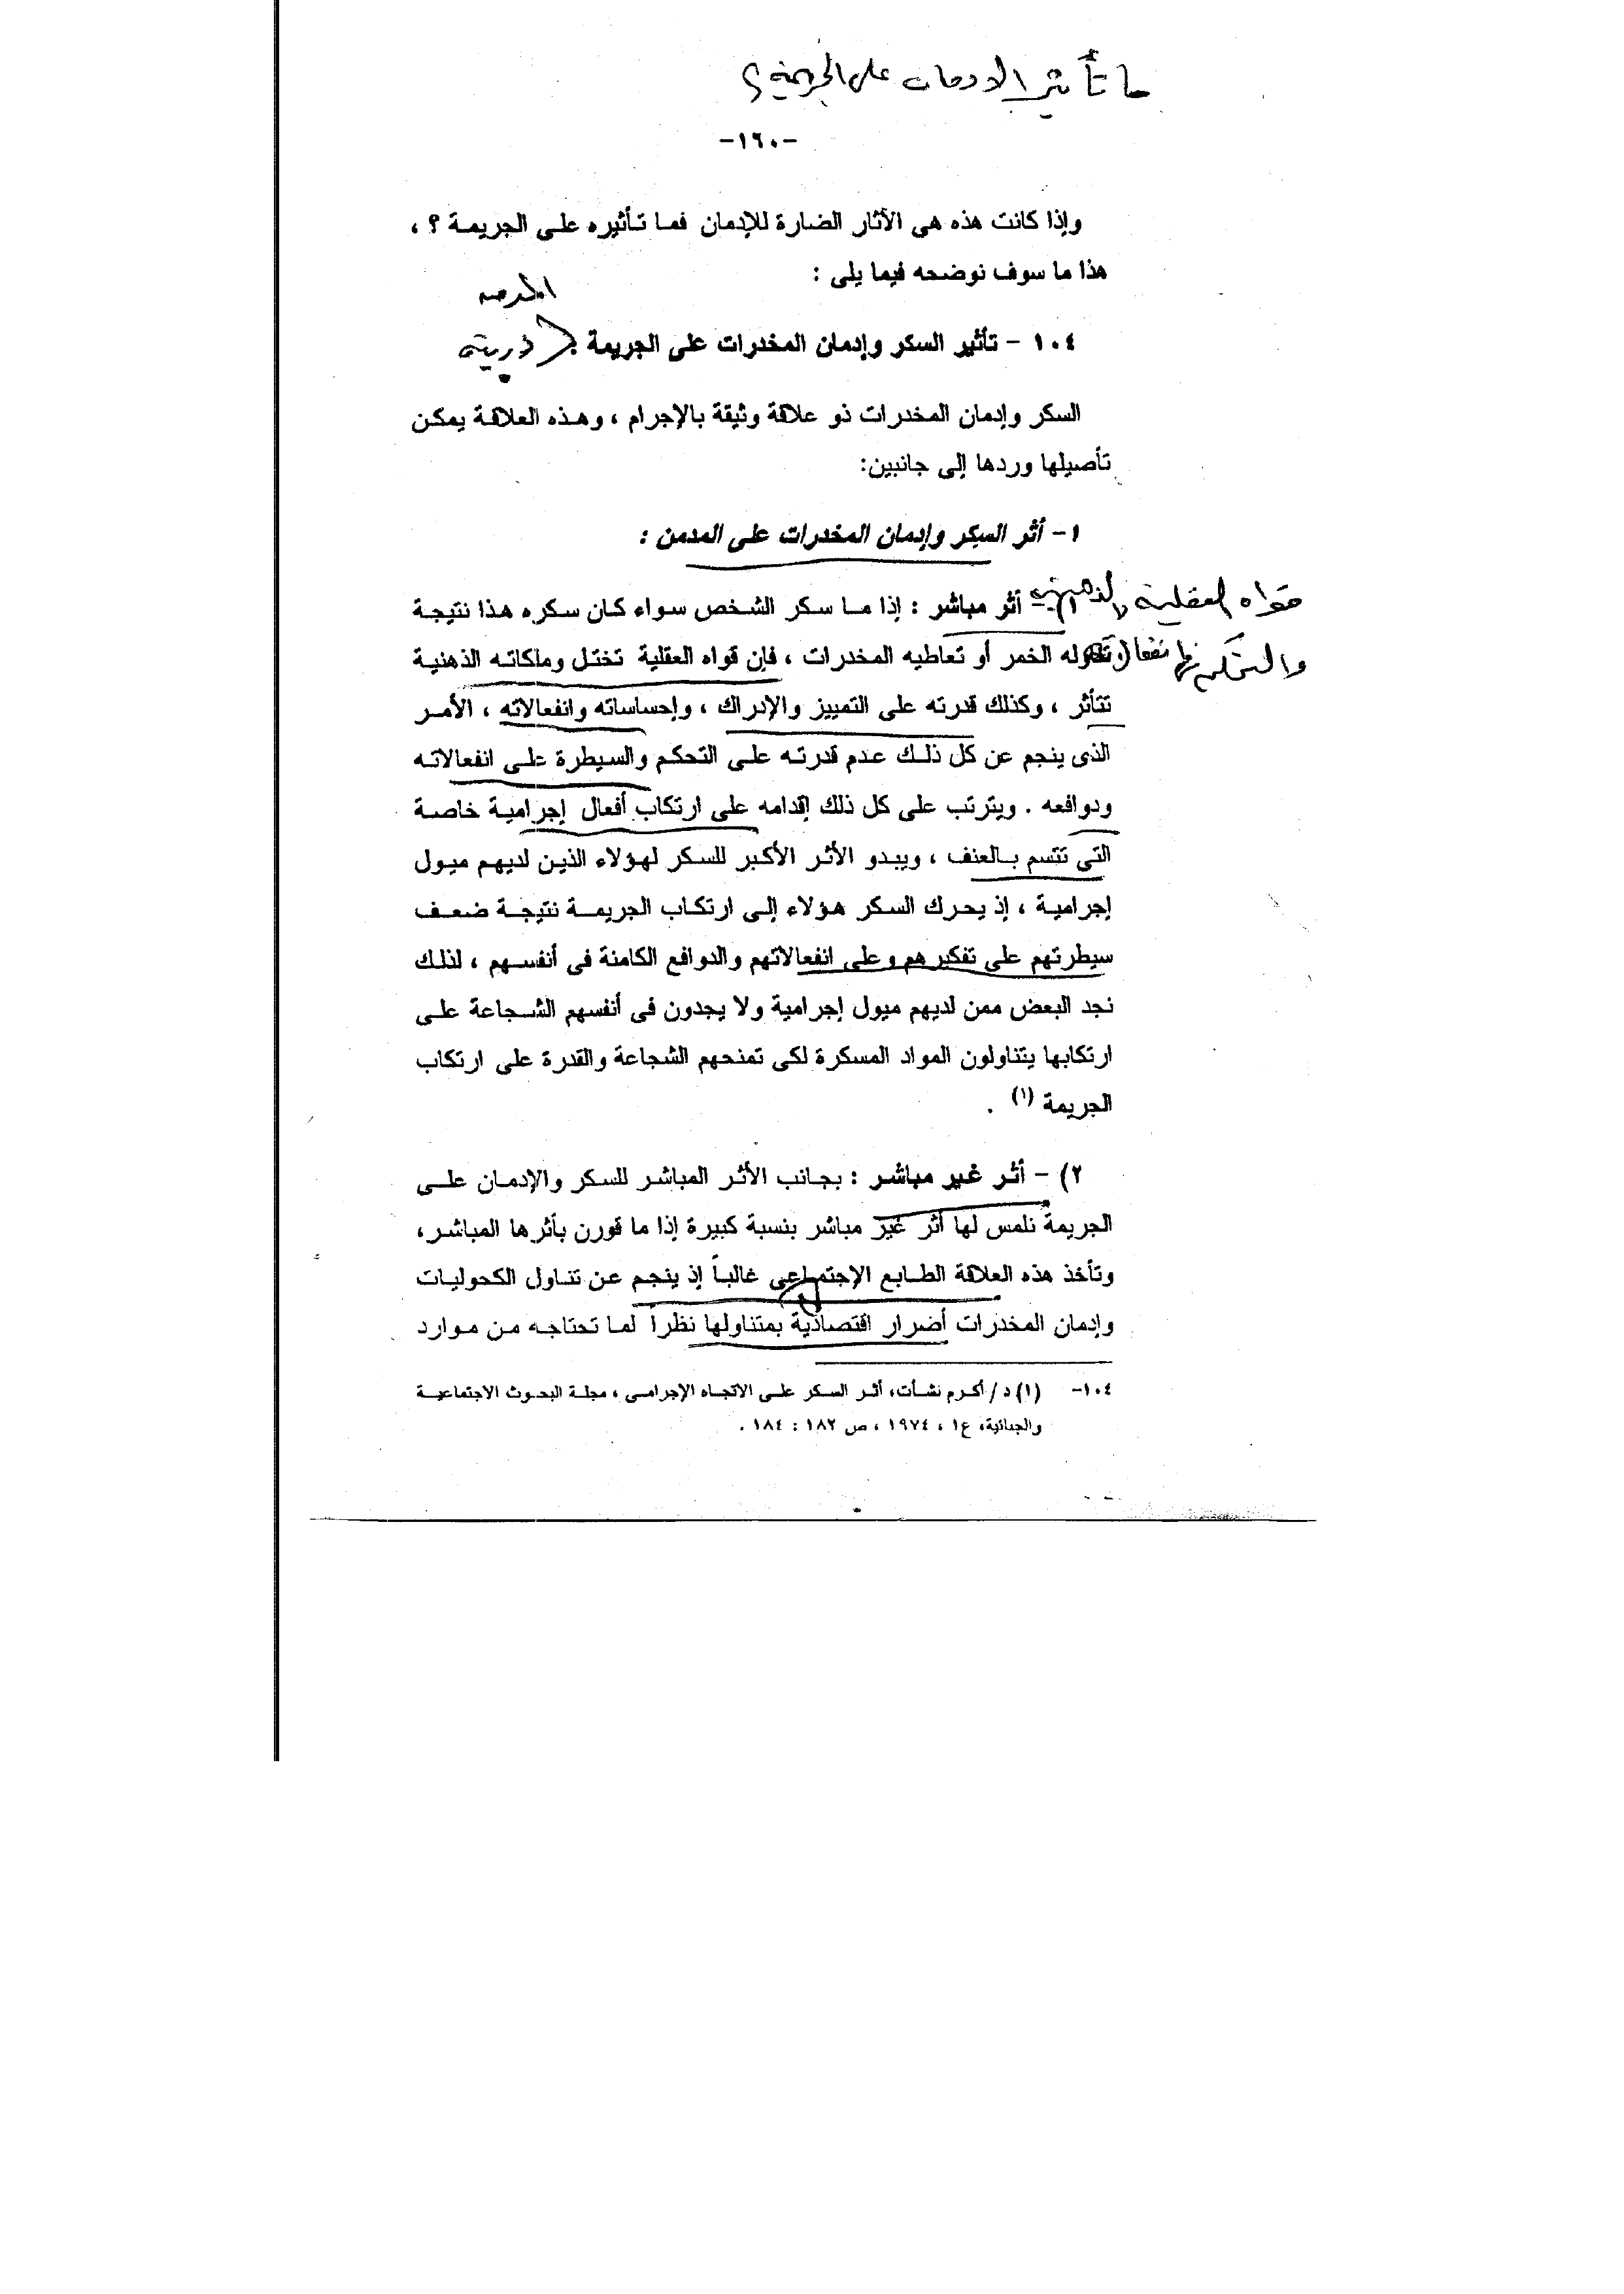 ما تأثير الادمان على الجريمة ؟
-١٦٠-
وإذا كانت هذه هى الآثار الضارة للإدمان فما تأثيره على الجريمة ؟ ،
هذا ما سوف نوضحه فيما يلى :
المدمن
١٠٤ - تأثير السكر وإدمان المخدرات على الجريمة : ذريته
السكر وإدمان المخدرات ذو علاقة وثيقة بالإجرام ، وهذه العلاقة يمكن
تأصيلها وردها إلى جانبين:
١- أثر السكر وإدمان المخدرات على المدمن :
قواه العقلية والذهنية
١) - أثر مباشر : إذا ما سكر الشخص سواء كان سكره هذا نتيجة
والتحكم
تناوله الخمر أو تعاطيه المخدرات ، فإن قواه العقلية تختل وملكاته الذهنية
تتأثر ، وكذلك قدرته على التمييز والإدراك ، وإحساساته وانفعالاته ، الأمر
الذى ينجم عن كل ذلك عدم قدرته على التحكم والسيطرة على انفعالاته
ودوافعه . ويترتب على كل ذلك إقدامه على ارتكاب أفعال إجرامية خاصة
التى تتسم بالعنف ، ويبدو الأثر الأكبر للسكر لهؤلاء الذين لديهم ميول
إجرامية ، إذ يحرك السكر هؤلاء إلى ارتكاب الجريمة نتيجة ضعف
سيطرتهم على تفكيرهم وعلى انفعالاتهم والدوافع الكامنة فى أنفسهم ، لذلك
نجد البعض ممن لديهم ميول إجرامية ولا يجدون فى أنفسهم الشجاعة على
ارتكابها يتناولون المواد المسكرة لكى تمنحهم الشجاعة والقدرة على ارتكاب
الجريمة (١) .
٢) - أثر غير مباشر : بجانب الأثر المباشر للسكر والإدمان على
الجريمة نلمس لها أثر غير مباشر بنسبة كبيرة إذا ما قورن بأثرها المباشر،
وتأخذ هذه العلاقة الطابع الإجتماعى غالباً إذ ينجم عن تناول الكحوليات
وإدمان المخدرات أضرار اقتصادية بمتناولها نظراً لما تحتاجه من موارد
١٠٤- (١) د/ أكرم نشأت، أثر السكر على الاتجاه الإجرامى ، مجلة البحوث الاجتماعية
والجنائية، ع١ ، ١٩٧٤ ، ص ١٨٢ : ١٨٤ .